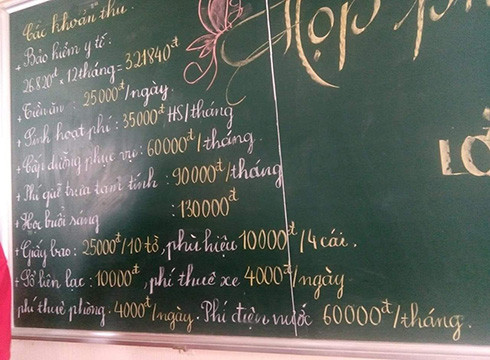 Các khoản thu.
+ Bảo hiểm y tế.
26.820đ x 12 tháng = 321840đ
+ Tiền ăn : 25000đ/ngày.
+ Sinh hoạt phí : 35000đ HS/tháng
+ Cấp dưỡng phục vụ : 60000đ/tháng.
+ Phí gửi trưa tạm tính : 90000đ/tháng
+ Học buổi sáng : 130000đ
+ Giấy bao : 25000đ/10 tờ, phù hiệu 10000đ/4 cái.
+ Sổ liên lạc : 10000đ, phí thuê xe 4000đ/ngày
phí thuê phòng. 4000đ/ngày. Phí điện nước 60000đ/tháng.
Họp ph
LỚ